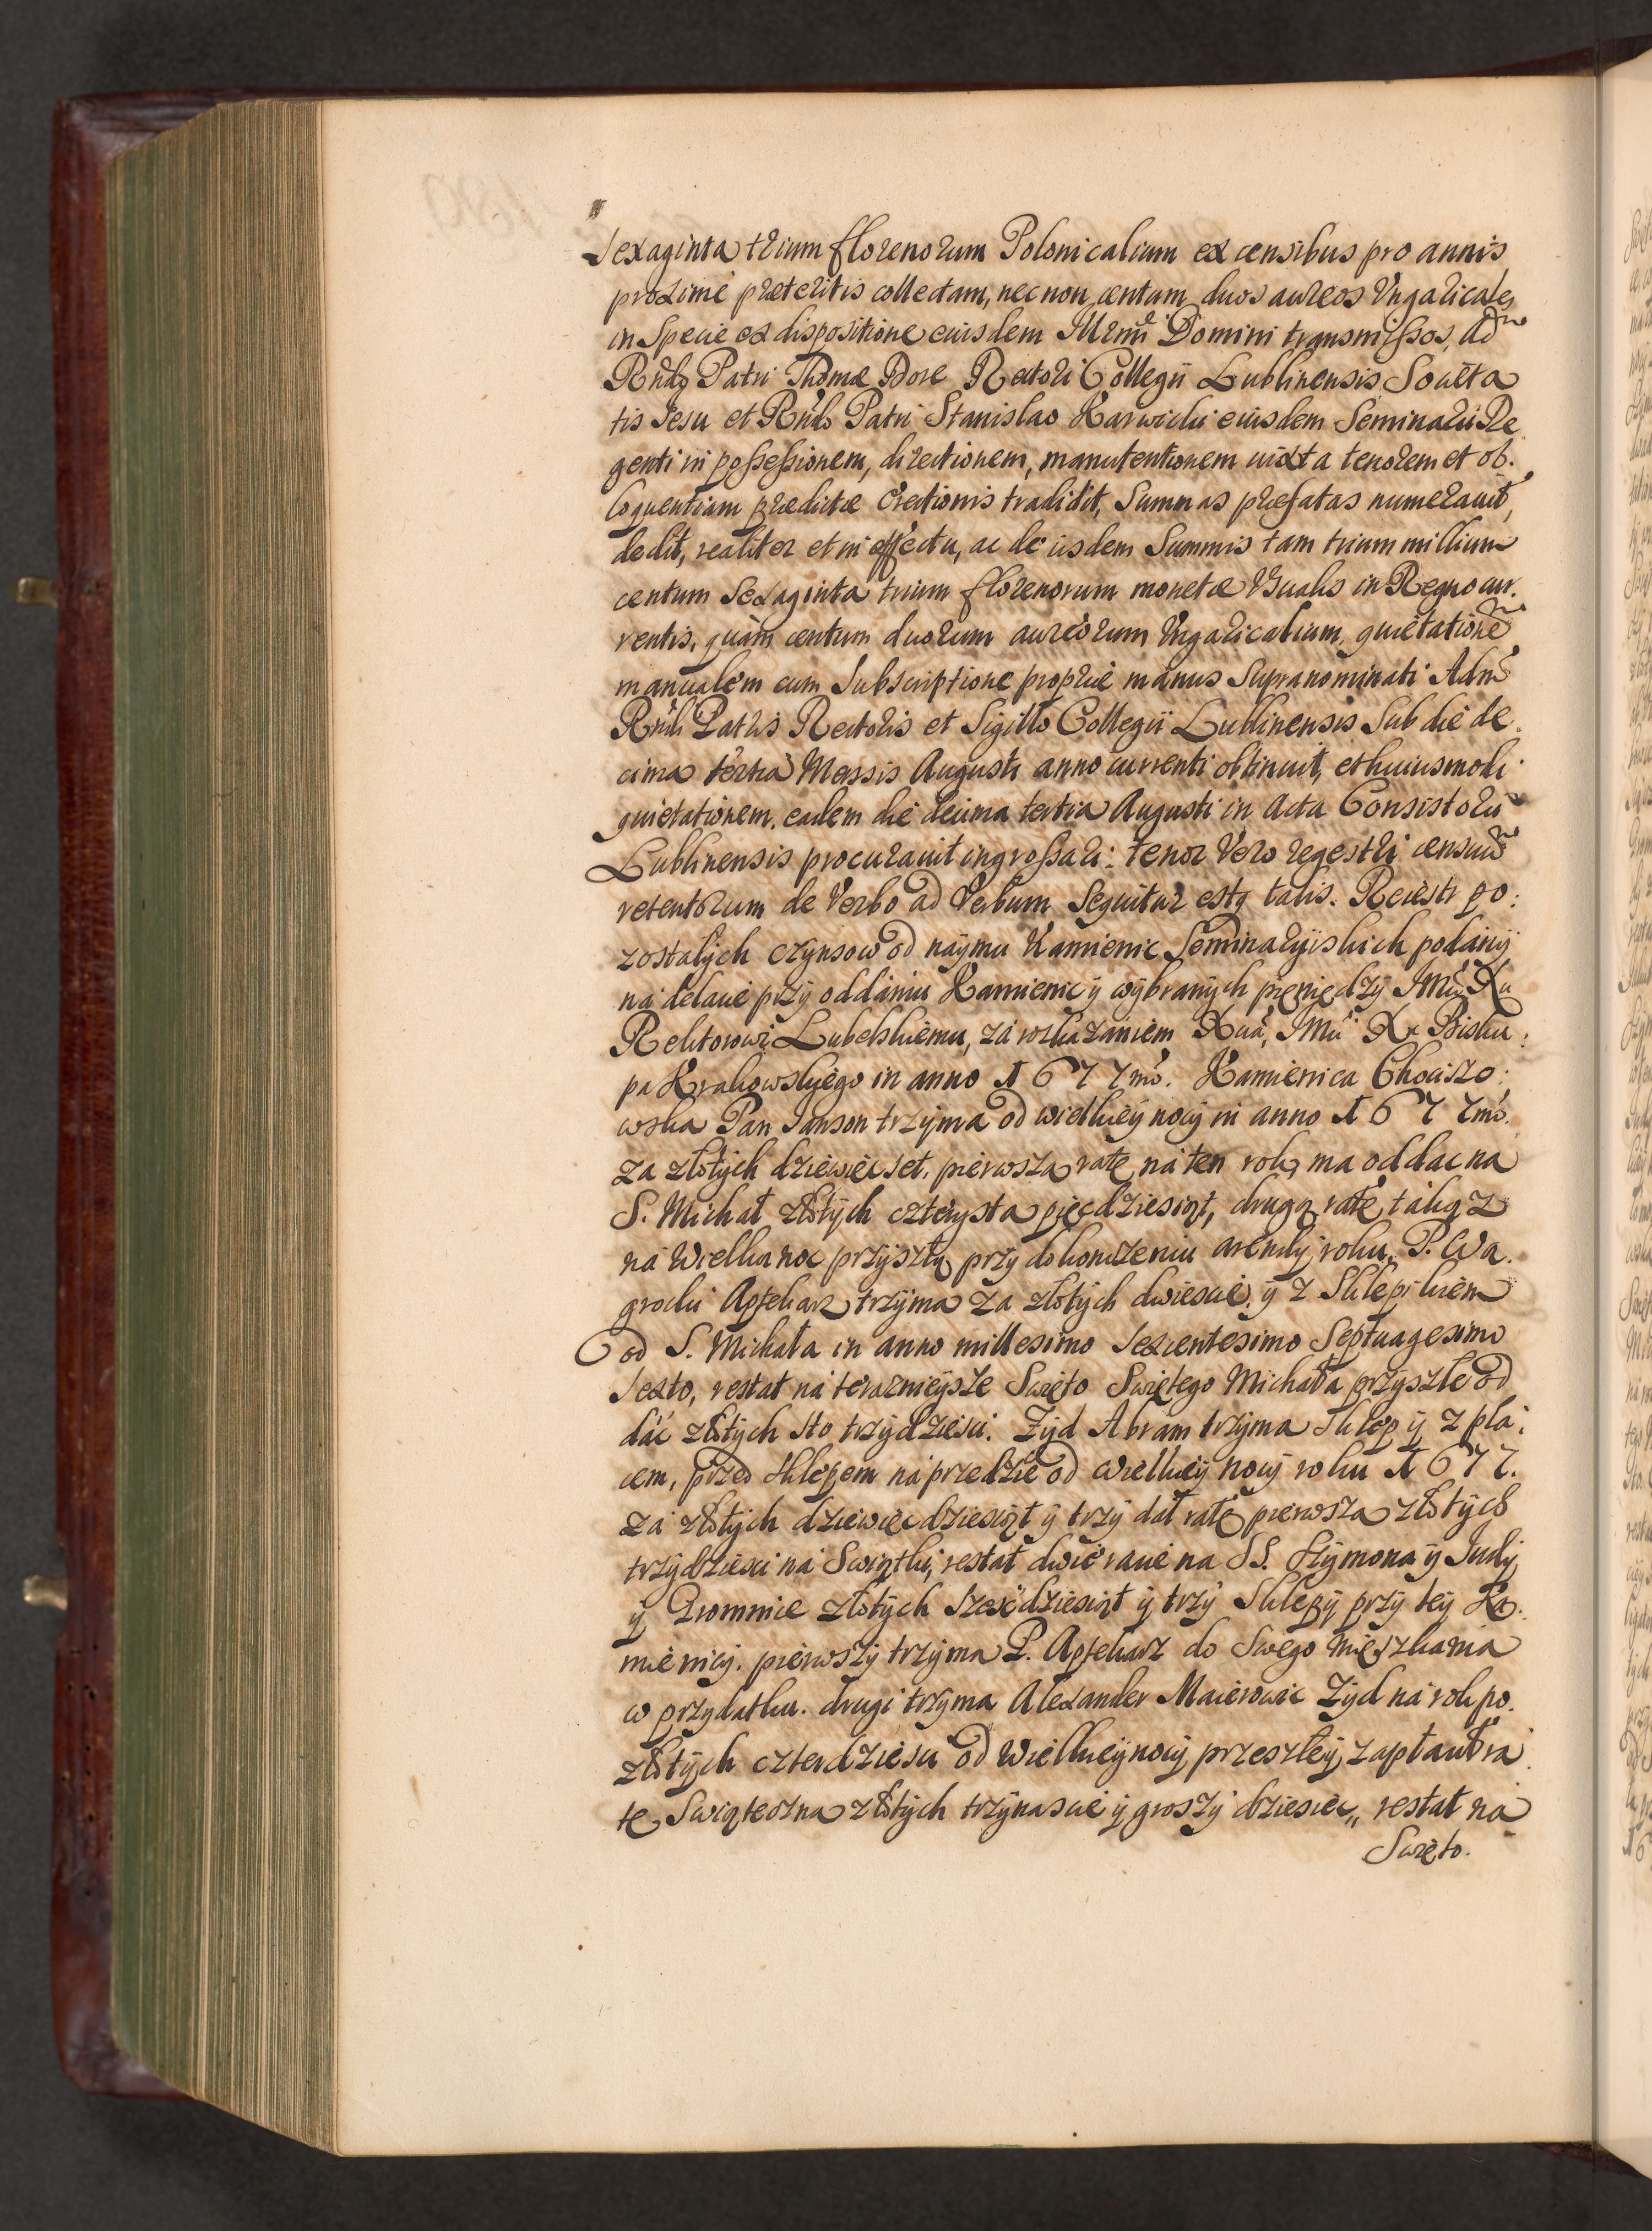 sexaginta trium florenorum Polonicalium ex censibus pro annis
proxime præteritis collectam, nec non centum duos aureos Vngaricales
in Specie ex dispositione eiusdem Illrmi Domini transmissos, Ad
Rndo Patri Thomæ Rectori Collegii Lublinensis Societa
tis Jesu et Rndo Patri Stanislao Karwicki eiusdem Seminarii Re
genti in possessionem, directionem, manutentionem iuxta tenorem et ob.
loquentiam prædictæ Erectionis tradidit, Summas præfatas numerauit,
dedit, realiter et in effectu, ac de iisdem Summis tam trium millium
centum Sexaginta trium florenorum monetæ Vsualis in Regno cur.
rentis, quàm centum duorum aureorum Vngaricalium, quietatione
manualem cum Subscriptione propriæ manus Supranominati Adm
Rndi Patris Rectoris et Sigillo Collegii Lublinensis Sub die de
cima tertia Mensis Augusti anno currenti obtinuit, et huiusmodi
quietationem eadem die decima tertia Augusti in Acta Consistorii
Lublinensis procurauit ingrossari: tenor Vero regestri censuu
retentorum de Verbo ad Verbum Sequitur estq talis. Reiestr po:
zostałych czynsow od naymu Kamienic Seminaryiskich podany
na delacie przy oddaniu Kamienic y wybranych pieniędzy JMci Xu
Rektorowi Lubelskiemu, za roskazaniem Xcia, JMci Xa Bisku:
pa Krakowskyego in anno 1677mo. Kamienica Chociszo:
wska Pan Janson trzyma od wielkieynocy in anno 1677mo.
za złotych dziewięcset. pierwszą ratę na ten rok, ma oddac na
S. Michał złotych czterysta pięcdziesiąt, drugą ratę takąz
na Wielkanoc przyszłą przy dokonczeniu arendy roku. P. Wa.
grocki Aptekarz trzyma za złotych dwiescie, y z Sklepikiem
od S. Michała in anno millesimo Sexcentesimo Septuagesimo
Sexto, restat na terazniejsze Swięto Swiętego Michała przyszłe od
dać złotych sto trzydziesci. Zyd Abram trzyma Sklep y z pla:
cem, przed sklepem na przedzie od wielkieynocy roku 1677.
za złotych dziewięcdziesiąt y trzy dał ratę pierwszą złotych
trzydziesci na Swiątki, restat dwie racie na SS. Szymona y Judy
y Gromnice złotych Szescdziesiąt y trzy Sklepy przy tey Ka.
mienicy. pierwszy trzyma P. Aptekarz do Swego mieszkania
w przydatku. drugi trzyma Alexander Maierowic Zyd na rok po.
złotych czterdziesci od Wielkieynocy przeszłey, zapłacił ra
tę Swiąteczną złotych trzynascie y groszy dziesięc,, restat na
Swięto.